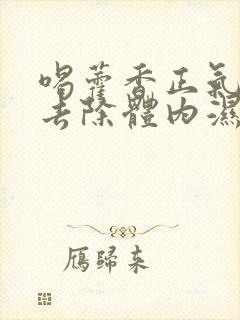 喝藿香正氣
去除體內濕
鴈歸來